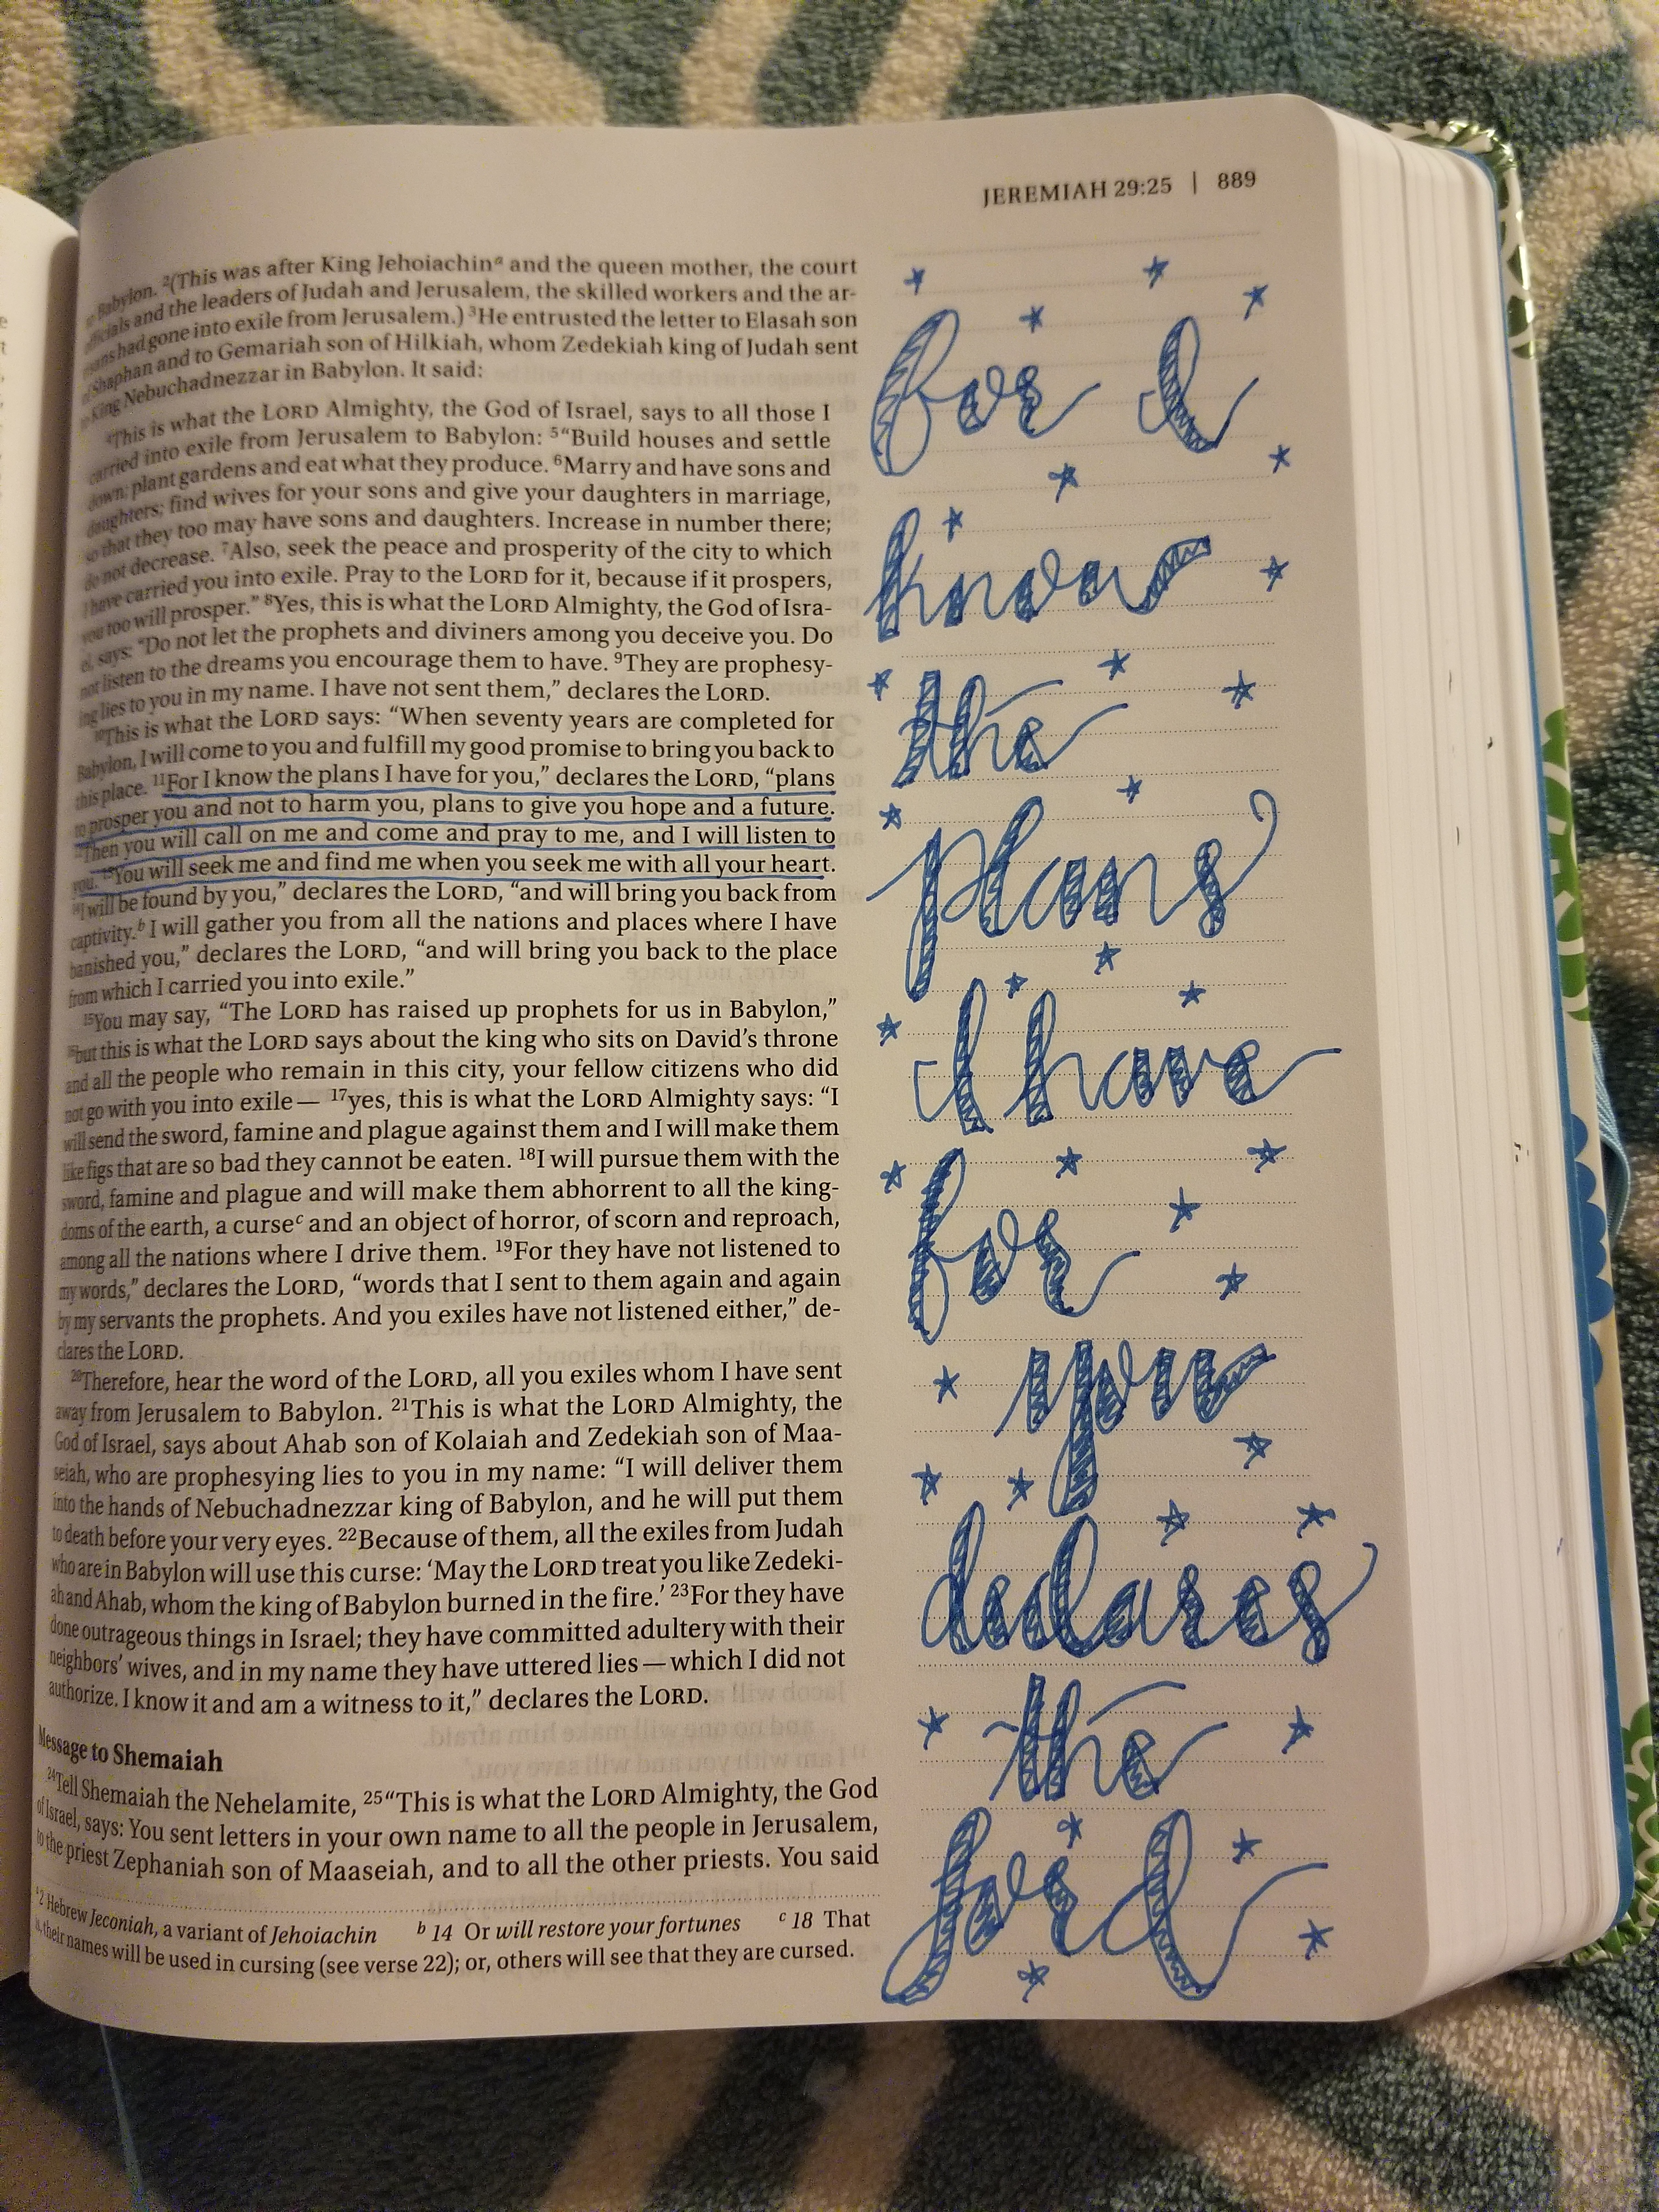 JEREMIAH 29:25 | 889
Babylon. ²(This was after King Jehoiachinᵃ and the queen mother, the court
officials and the leaders of Judah and Jerusalem, the skilled workers and the ar-
had gone into exile from Jerusalem.) ³He entrusted the letter to Elasah son
Shaphan and to Gemariah son of Hilkiah, whom Zedekiah king of Judah sent
King Nebuchadnezzar in Babylon. It said:
⁴This is what the LORD Almighty, the God of Israel, says to all those I
carried into exile from Jerusalem to Babylon: ⁵“Build houses and settle
down; plant gardens and eat what they produce. ⁶Marry and have sons and
daughters; find wives for your sons and give your daughters in marriage,
so that they too may have sons and daughters. Increase in number there;
do not decrease. ⁷Also, seek the peace and prosperity of the city to which
I have carried you into exile. Pray to the LORD for it, because if it prospers,
you too will prosper.” ⁸Yes, this is what the LORD Almighty, the God of Isra-
el, says: “Do not let the prophets and diviners among you deceive you. Do
not listen to the dreams you encourage them to have. ⁹They are prophesy-
ing lies to you in my name. I have not sent them,” declares the LORD.
¹⁰This is what the LORD says: “When seventy years are completed for
Babylon, I will come to you and fulfill my good promise to bring you back to
this place. ¹¹For I know the plans I have for you,” declares the LORD, “plans
to prosper you and not to harm you, plans to give you hope and a future.
¹²Then you will call on me and come and pray to me, and I will listen to
you. ¹³You will seek me and find me when you seek me with all your heart.
¹⁴I will be found by you,” declares the LORD, “and will bring you back from
captivity.ᵇ I will gather you from all the nations and places where I have
banished you,” declares the LORD, “and will bring you back to the place
from which I carried you into exile.”
¹⁵You may say, “The LORD has raised up prophets for us in Babylon,”
¹⁶but this is what the LORD says about the king who sits on David’s throne
and all the people who remain in this city, your fellow citizens who did
not go with you into exile— ¹⁷yes, this is what the LORD Almighty says: “I
will send the sword, famine and plague against them and I will make them
like figs that are so bad they cannot be eaten. ¹⁸I will pursue them with the
sword, famine and plague and will make them abhorrent to all the king-
doms of the earth, a curseᶜ and an object of horror, of scorn and reproach,
among all the nations where I drive them. ¹⁹For they have not listened to
my words,” declares the LORD, “words that I sent to them again and again
by my servants the prophets. And you exiles have not listened either,” de-
clares the LORD.
²⁰Therefore, hear the word of the LORD, all you exiles whom I have sent
away from Jerusalem to Babylon. ²¹This is what the LORD Almighty, the
God of Israel, says about Ahab son of Kolaiah and Zedekiah son of Maa-
seiah, who are prophesying lies to you in my name: “I will deliver them
into the hands of Nebuchadnezzar king of Babylon, and he will put them
to death before your very eyes. ²²Because of them, all the exiles from Judah
who are in Babylon will use this curse: ‘May the LORD treat you like Zedeki-
ah and Ahab, whom the king of Babylon burned in the fire.’ ²³For they have
done outrageous things in Israel; they have committed adultery with their
neighbors’ wives, and in my name they have uttered lies—which I did not
authorize. I know it and am a witness to it,” declares the LORD.
Message to Shemaiah
²⁴Tell Shemaiah the Nehelamite, ²⁵“This is what the LORD Almighty, the God
of Israel, says: You sent letters in your own name to all the people in Jerusalem,
to the priest Zephaniah son of Maaseiah, and to all the other priests. You said
ᵃ 2 Hebrew Jeconiah, a variant of Jehoiachin ᵇ 14 Or will restore your fortunes ᶜ 18 That
is, their names will be used in cursing (see verse 22); or, others will see that they are cursed.
for I
know
the
plans
I have
for
you
declares
the
lord